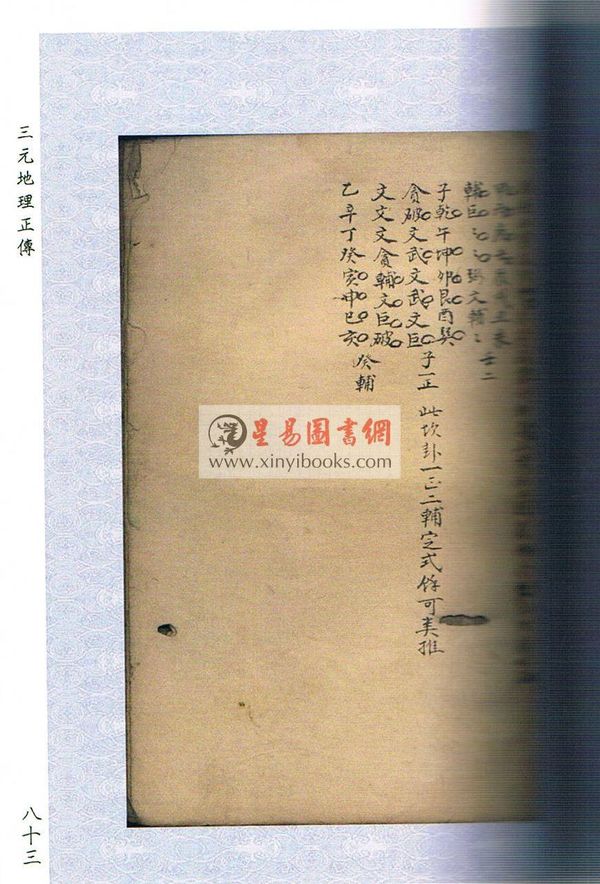 輔巨〻〻弼文輔〻 壬二
子乾午坤卯艮酉巽
貪破文武文武文巨 子一正 此坎卦一正二輔定式餘可类推
文文文貪輔文巨破
乙辛丁癸亥申巳亥 癸輔
星易圖書網
www.xinyibooks.com
三元地理正傳
八十三